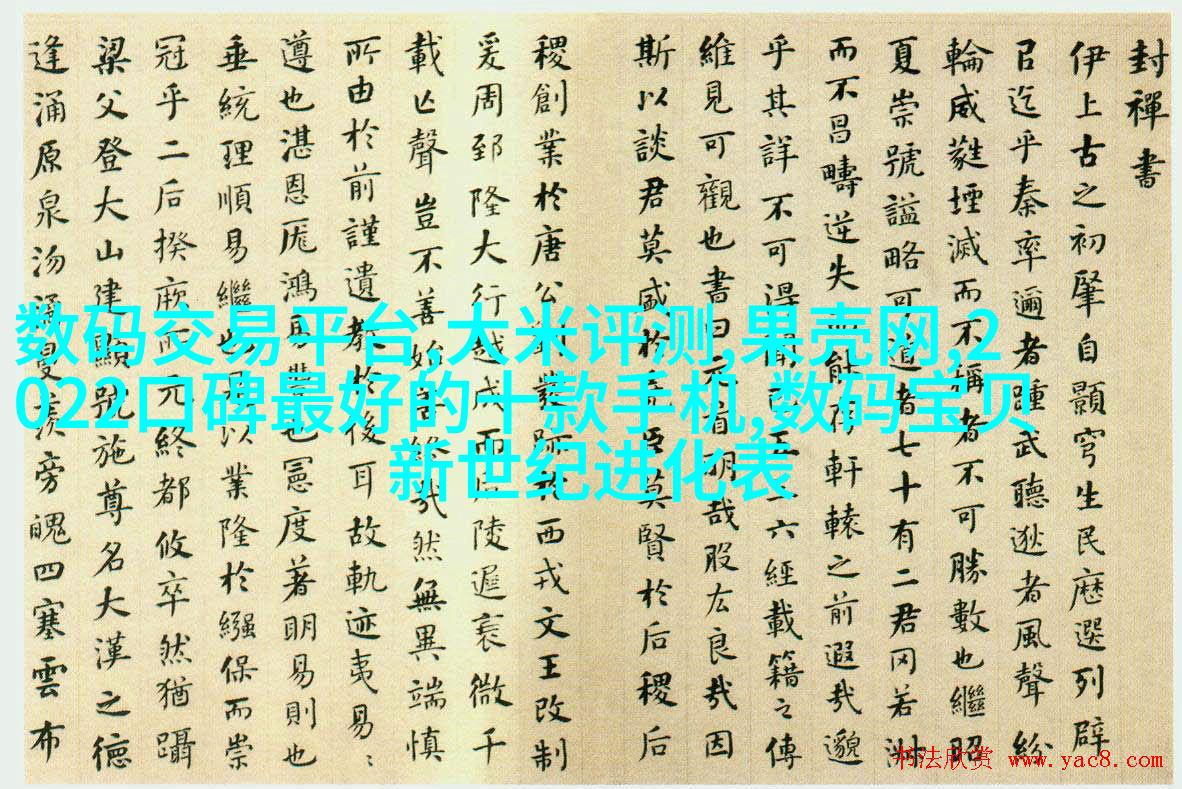 封禪書
伊上古之初肇自顥穹生民歷選列辟
㠯迄乎秦率邇者踵武聽逖者風聲紛
輪威蕤堙滅而不稱者不可勝數也繼昭
夏崇號謚略可道者七十有二君罔若淑
而不昌疇逆失而能存軒轅之前遐哉邈
乎其詳不可得聞已五三六經載籍之傳
維見可觀也書曰元首明哉股厷良哉因
斯以談君莫盛於堯臣莫賢於后稷后
稷創業於唐公劉發跡於西戎文王改制
爰周郅隆大行越成而后陵遲衰微千
載亡聲豈不善始善終哉然無異端慎
所由於前謹遺教於後耳故軌迹夷易〻
遵也湛恩厖鴻易豐也憲度著明易則也
垂統理順易繼也是以業隆於繈保而崇
冠乎二后揆厥所元終都攸卒然猶躡
梁父登大山建顯號施尊名大漢之德
逢涌原泉沕潏曼羨旁魄四塞雲布
数码交易平台,大米评测,果壳网,2
022口碑最好的十款手机,数码宝贝
新世纪进化表
书法欣赏 www.yac8.com